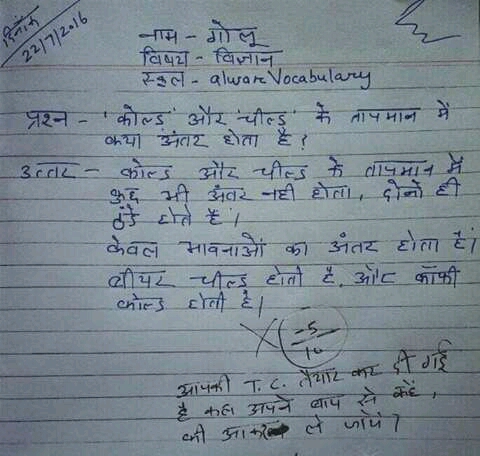 दिनांक
22/7/2016
नाम - गोलू
विषय - विज्ञान
स्कूल - alware Vocabulary
प्रश्न - 'कोल्ड' और 'चील्ड' के तापमान में
क्या अंतर होता है?
उत्तर - कोल्ड और चील्ड के तापमान में
कुछ भी अंतर नही होता, दोनो ही
ठंडे होते है।
केवल भावनाओं का अंतर होता है।
बीयर चील्ड होती है, और कॉफी
कोल्ड होती है।
-5
10
आपकी T.C. तैयार कर दी गई
है कल अपने बाप से कहें,
की आकर ले जायें।